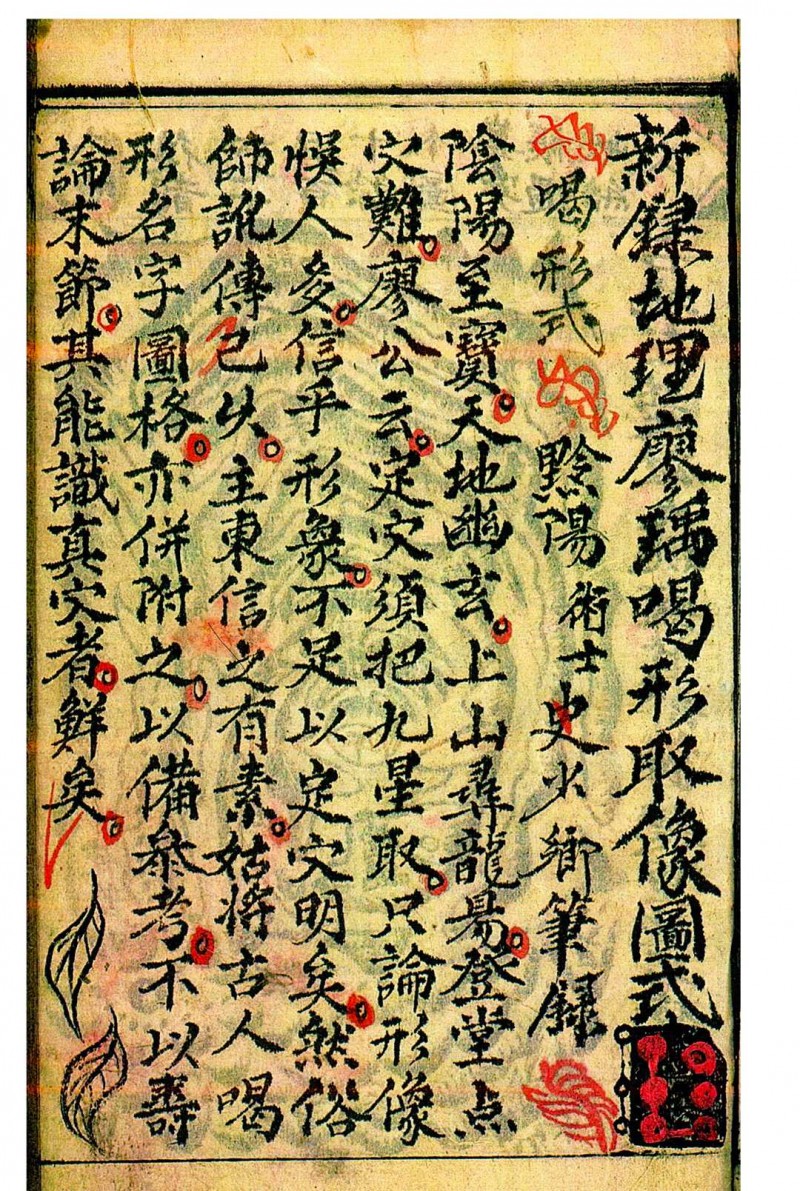 新録地理廖瑀喝形取像圖式
喝形式 黟陽術士史火鄉筆録
陰陽至寶天地幽玄上山尋龍易登堂点
穴難廖公云定穴須把九星取只論形像
悮人多信乎形象不足以定穴明矣然俗
師訛傳已久主東信之有素姑将古人喝
形名字圖格亦併附之以備叅考不以壽
論末節其能識真穴者鮮矣